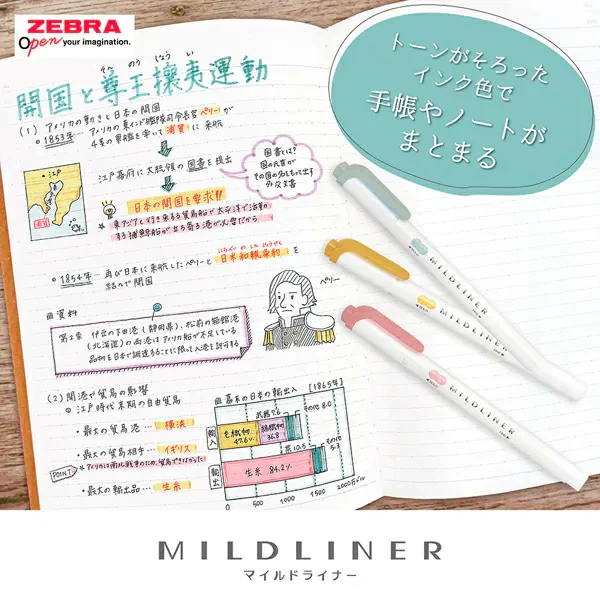 ZEBRA
Open your imagination.
トーンがそろった
インク色で
手帳やノートが
まとまる
そんのう じょうい
開国と尊王攘夷運動
(1) アメリカの動きと日本の開国
1853年… アメリカの東インド艦隊司令長官ペリーが
4隻の軍艦を率いて浦賀に来航
江戸
浦賀
江戸幕府に大統領の国書を提出
国書とは?
国の元首が
その国の名をもって出す
外交文書
日本の開国を要求!!
★東アジアと行き来する貿易船が太平洋で活動
する捕鯨船が立ち寄る港が必要だから
1854年… 再び日本に来航したペリーと日米和親条約を
にちべいわしんじょうやく
結んで開国
ペリー
資料
第2条 伊豆の下田港(静岡県)、松前の箱館港
(北海道)の両港はアメリカ船が不足している
品物を日本で調達することに限って入港を許可する
(2) 開港や貿易の影響
江戸時代末期の自由貿易
・最大の貿易港… 横浜
・最大の貿易相手… イギリス
POINT
★アメリカは南北戦争のため、貿易できなかった!
・最大の輸出品… 生糸
幕末の日本の輸出入 [1865年]
武器7.6
その他8.0
輸入
毛織物
47.6%
綿織物
36.8
茶10.5
その他
5.3
輸出
生糸 84.2%
0 500 1000 1500 2000万ドル
MILDLINER
MILDLINER
MILDLINER
MILDLINER
マイルドライナー